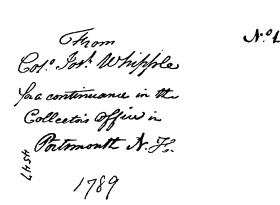 From
Nº 1
Colº. Josh. Whipple
for a continuance in the
Collectors office in
Portsmouth N. H.
4547
1789